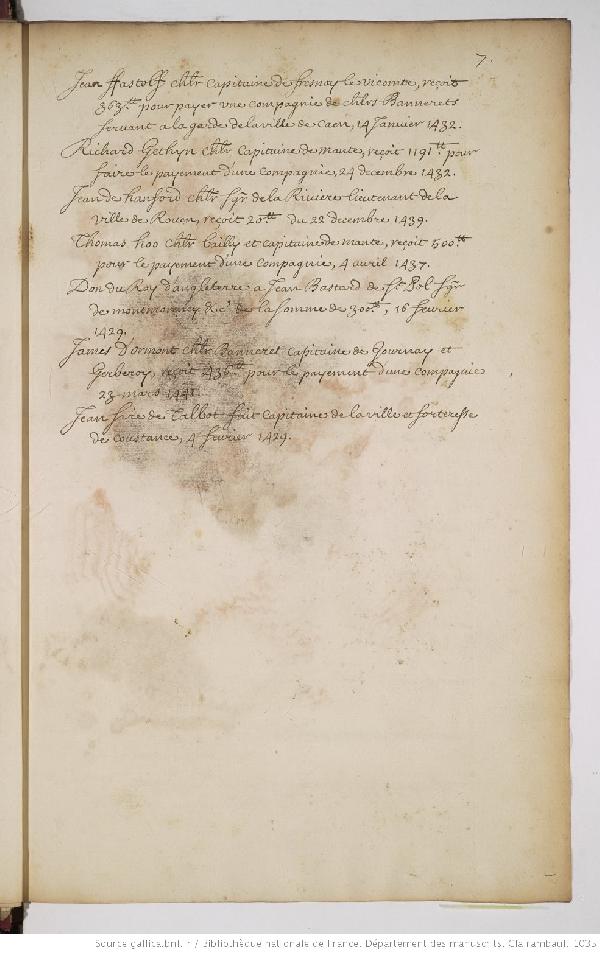 7.
Jean ffastolf chlr Capitaine de fresnay le vicomte, reçoit
363.tt pour payer vne compagnie de chlrs Bannerets
servant a la garde de la ville de Caen, 14 Janvier 1432.
Richard Gethyn chlr Capitaine de mante, reçoit 1191tt pour
faire le payement d'une compagnie, 24 decembre 1432.
Jean de hanford chlr sgr de la Riviere lieutenant de la
ville de Rouen, reçoit 20tt du 22 decembre 1439.
Thomas hoo chlr bailly et capitaine de mante, reçoit 500tt
pour le payement d'une compagnie, 4 avril 1437.
Don du Roy d'angleterre a Jean Bastard de St Pol sgr
de montmorency &c. de la somme de 300tt, 16 fevrier
1429.
James D'ormont chlr Banneret Capitaine de Gournay et
Gerberoy, reçoit pour le payement d'une compagnie
23 mars 1441.
Jean sire de Talbot fait Capitaine de la ville et forteresse
de Coustance, 4 fevrier 1429.
Source gallica.bnf.fr / Bibliothèque nationale de France. Département des manuscrits. Clairambault 1035